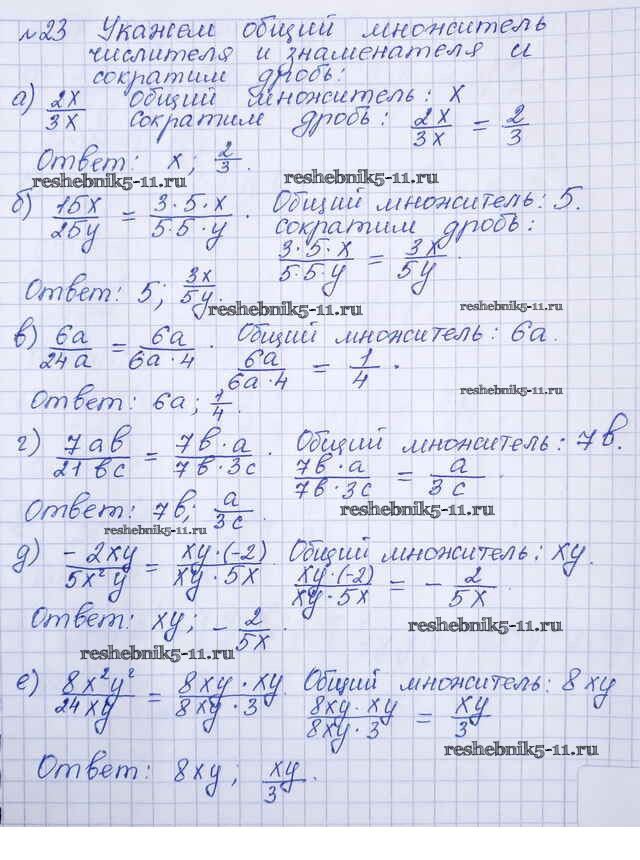 №23 Укажем общий множитель
числителя и знаменателя и
сократим дробь:
а) 2x/3x Общий множитель: x
сократим дробь: 2x/3x = 2/3
Ответ: x; 2/3.
reshebnik5-11.ru reshebnik5-11.ru
б) 15x/25y = 3·5·x/5·5·y. Общий множитель: 5.
сократим дробь:
3·5·x/5·5·y = 3x/5y.
Ответ: 5; 3x/5y.
reshebnik5-11.ru reshebnik5-11.ru
в) 6a/24a = 6a/6a·4. Общий множитель: 6a.
6a/6a·4 = 1/4.
reshebnik5-11.ru
Ответ: 6a; 1/4.
г) 7ab/21bc = 7b·a/7b·3c. Общий множитель: 7b.
7b·a/7b·3c = a/3c.
Ответ: 7b; a/3c.
reshebnik5-11.ru
reshebnik5-11.ru
д) -2xy/5x²y = xy·(-2)/xy·5x. Общий множитель: xy.
xy·(-2)/xy·5x = -2/5x.
Ответ: xy; -2/5x.
reshebnik5-11.ru
reshebnik5-11.ru
е) 8x²y²/24xy = 8xy·xy/8xy·3. Общий множитель: 8xy
8xy·xy/8xy·3 = xy/3
reshebnik5-11.ru
Ответ: 8xy; xy/3.